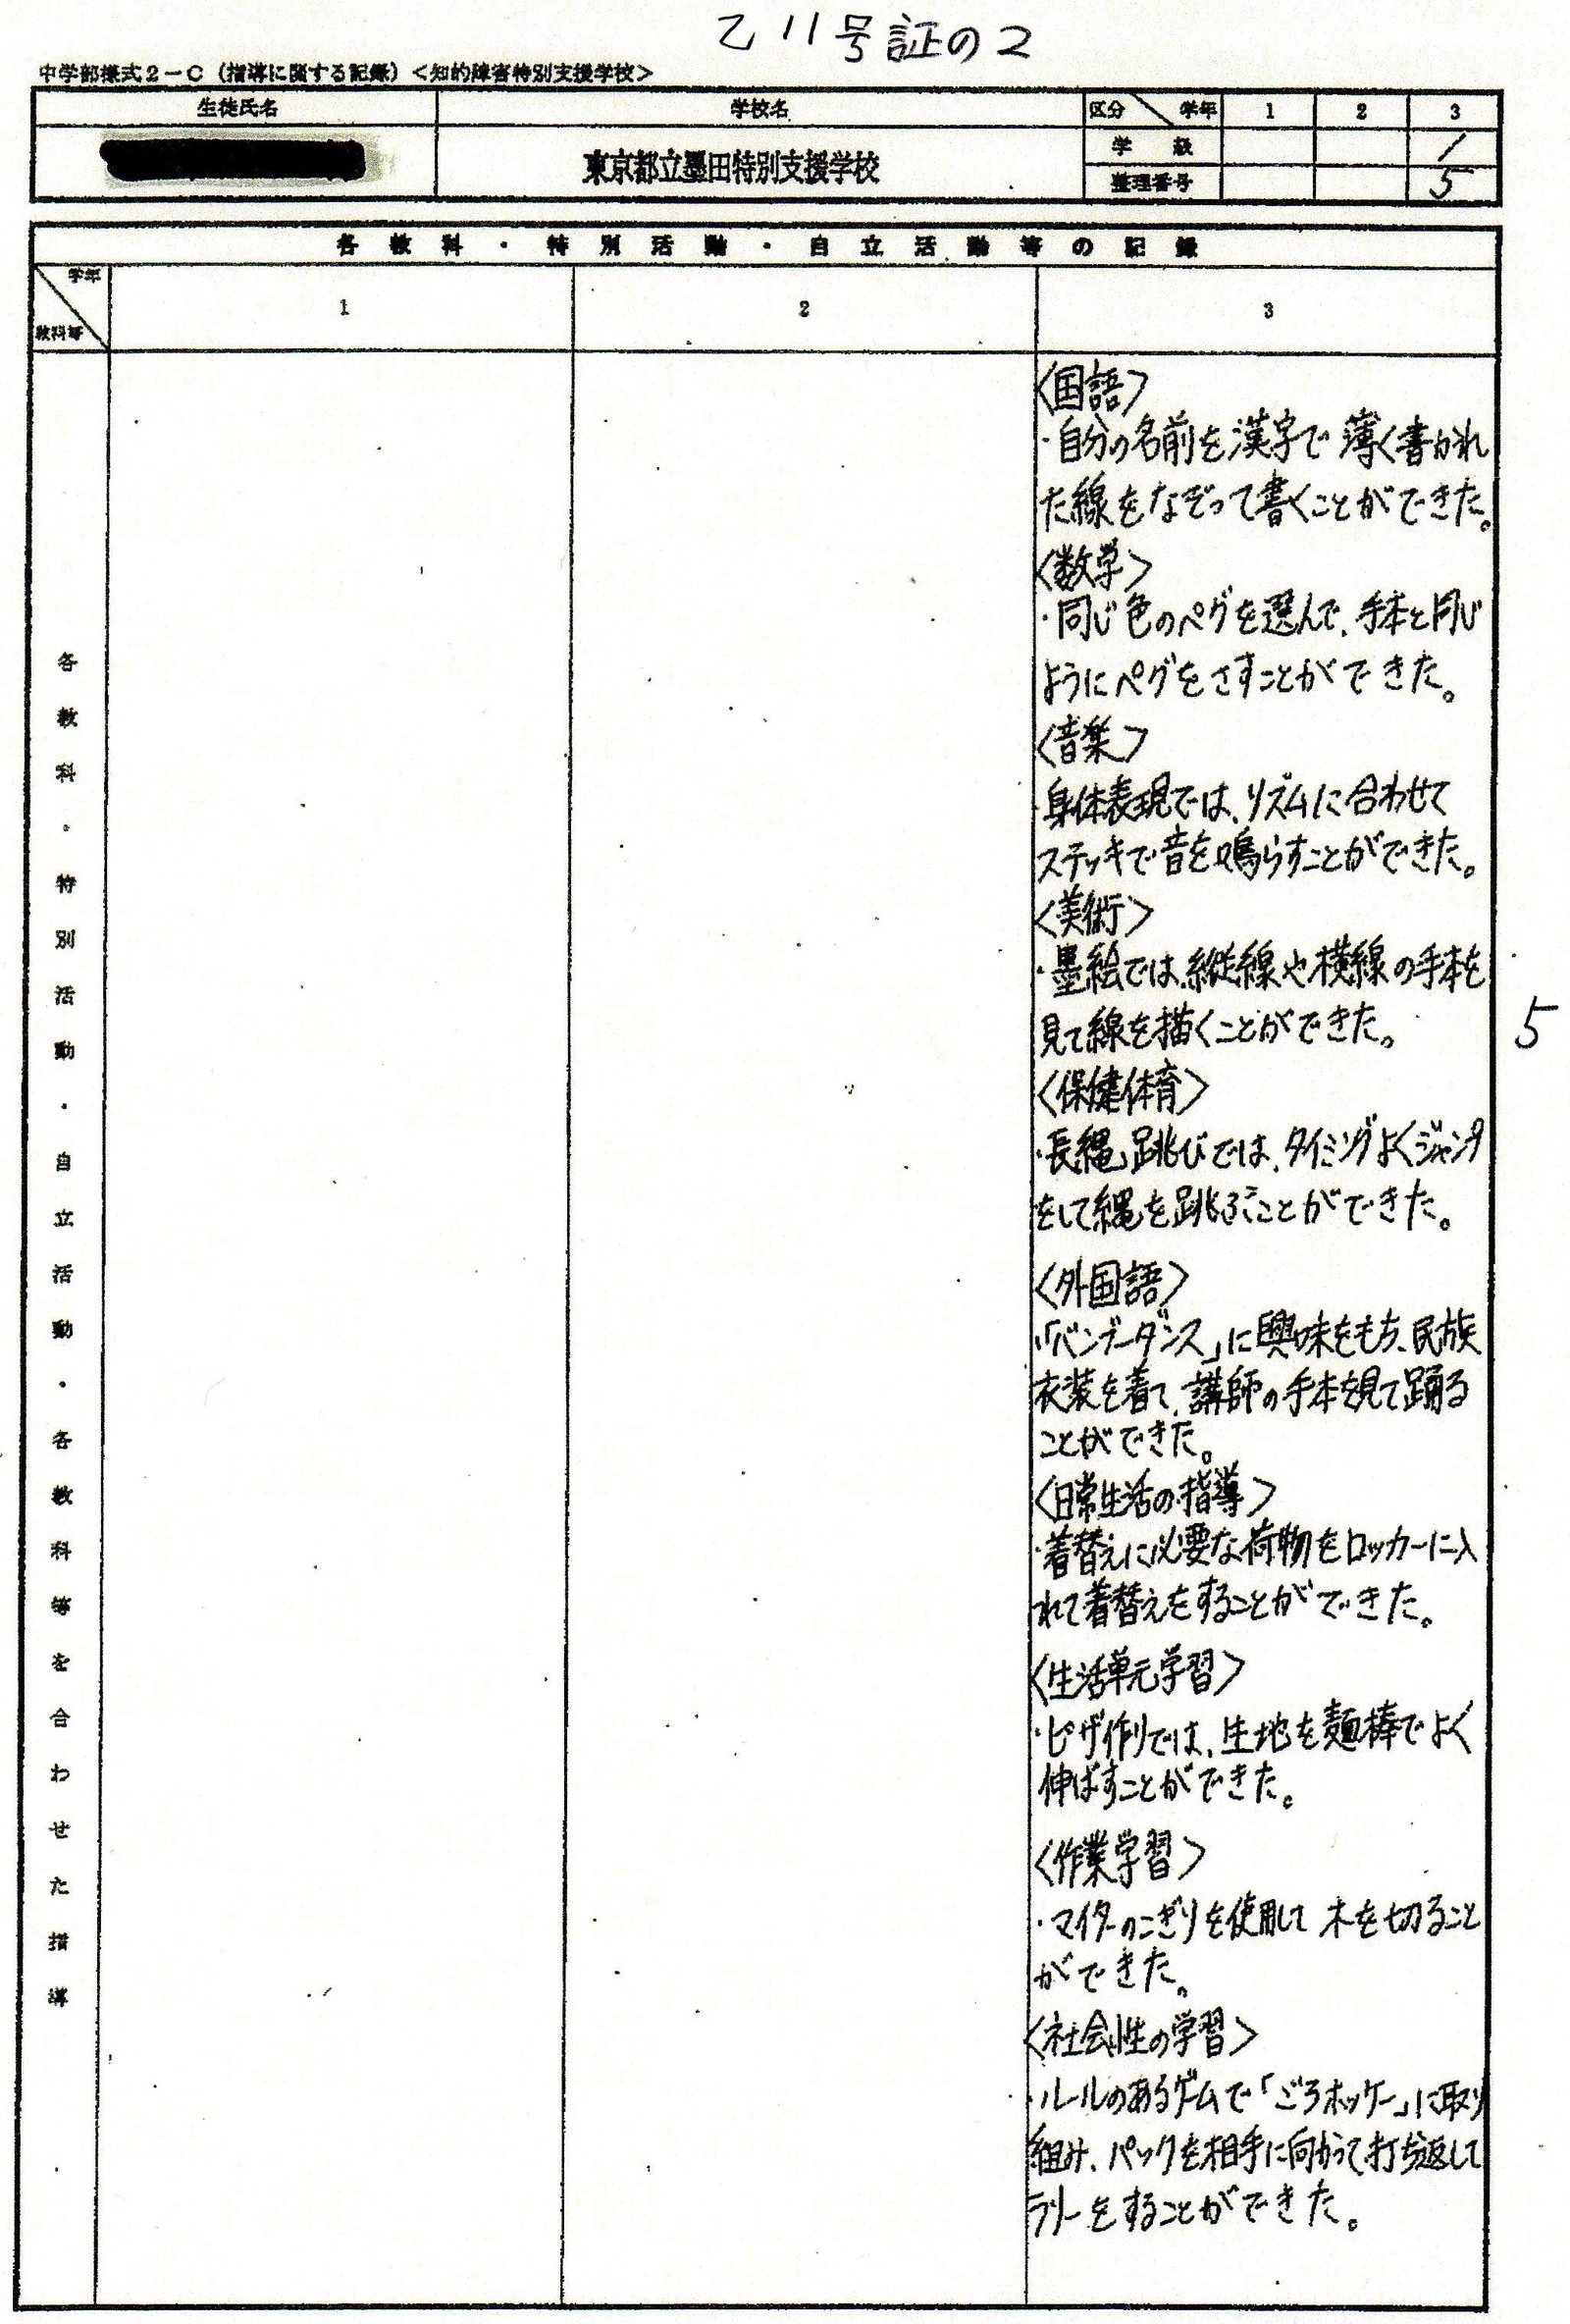 乙11号証の2
中学部様式2－C（指導に関する記録）＜知的障害特別支援学校＞
生徒氏名 学校名 区分 学年 1 2 3
東京都立墨田特別支援学校
学級 1
整理番号 5
各教科・特別活動・自立活動等の記録
学年
教科等
1 2 3
各教科。特別活動・自立活動・各教科等を合わせた指導
〈国語〉
・自分の名前を漢字で薄く書かれ
た線をなぞって書くことができた。
〈数学〉
・同じ色のペグを選んで、手本と同じ
ようにペグをさすことができた。
〈音楽〉
・身体表現では、リズムに合わせて
ステッキで音を鳴らすことができた。
〈美術〉
・墨絵では、縦線や横線の手本を
見て線を描くことができた。
〈保健体育〉
・長縄跳びでは、タイミングよくジャンプ
をして縄を跳ぶことができた。
〈外国語〉
・「ベンデーダンス」に興味をもち、民族
衣装を着て、講師の手本を見て踊る
ことができた。
〈日常生活の指導〉
・着替えに必要な荷物をロッカーに入
れて着替えをすることができた。
〈生活単元学習〉
・ピザ作りでは、生地を麺棒でよく
伸ばすことができた。
〈作業学習〉
・マイターのこぎりを使用して木を切ること
ができた。
〈社会性の学習〉
・ルールのあるゲームで「ごろホッケー」に取り
組み、パックを相手に向かって打ち返して
ラリーをすることができた。
5